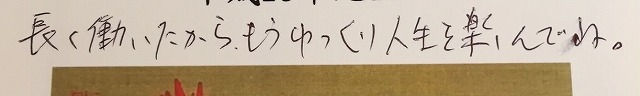 長く働いたから、もうゆっくり人生を楽しんでね。